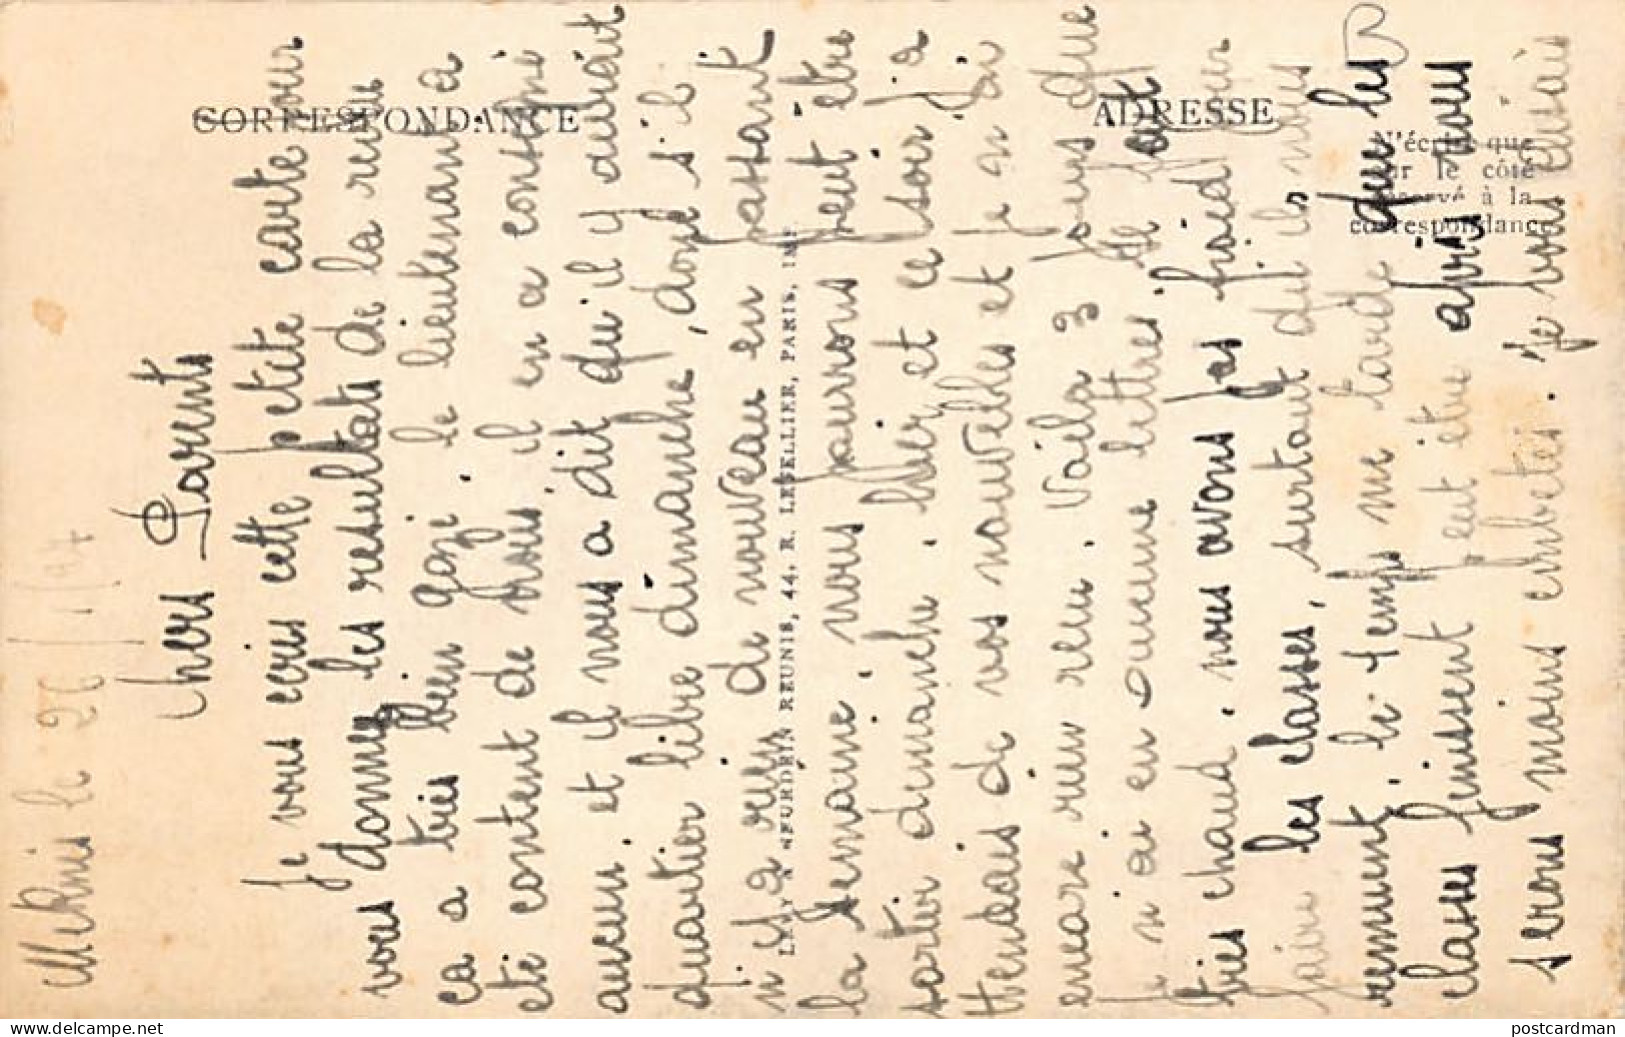 Meknis le 26/1/47
Chers Parents
Je vous ecris cette petite carte pour
vous donner les resultats de la revu
ça a très bien gazé. le lieutenant a
ete content de nous, il en a consigné
aucun. et il nous a dit qu'il y aurait
quartier libre dimanche, donc s'il
n'y a rien de nouveau en partant
la semaine. nous pourrons peut être
sortir dimanche. Hier et ce soir j'a
ttendais de vos nouvelles et je n'ai
encore rien reçu. Voila 3 jours que
je n'ai eu aucune lettres. Il fait
très chaud. nous avons pas froid pour
faire les classes, surtout qu'ils nous
remuent. le temps me tarde que les
classes finissent peut etre après nous
serons moins embetés. Je vous laisais
CORRESPONDANCE
ADRESSE
N'écrire que
sur le côté
réservé à la
correspondance
LEVY & NEURDEIN REUNIS, 44, R. LETELLIER, PARIS, IMP.
delcampe.net
postcardman